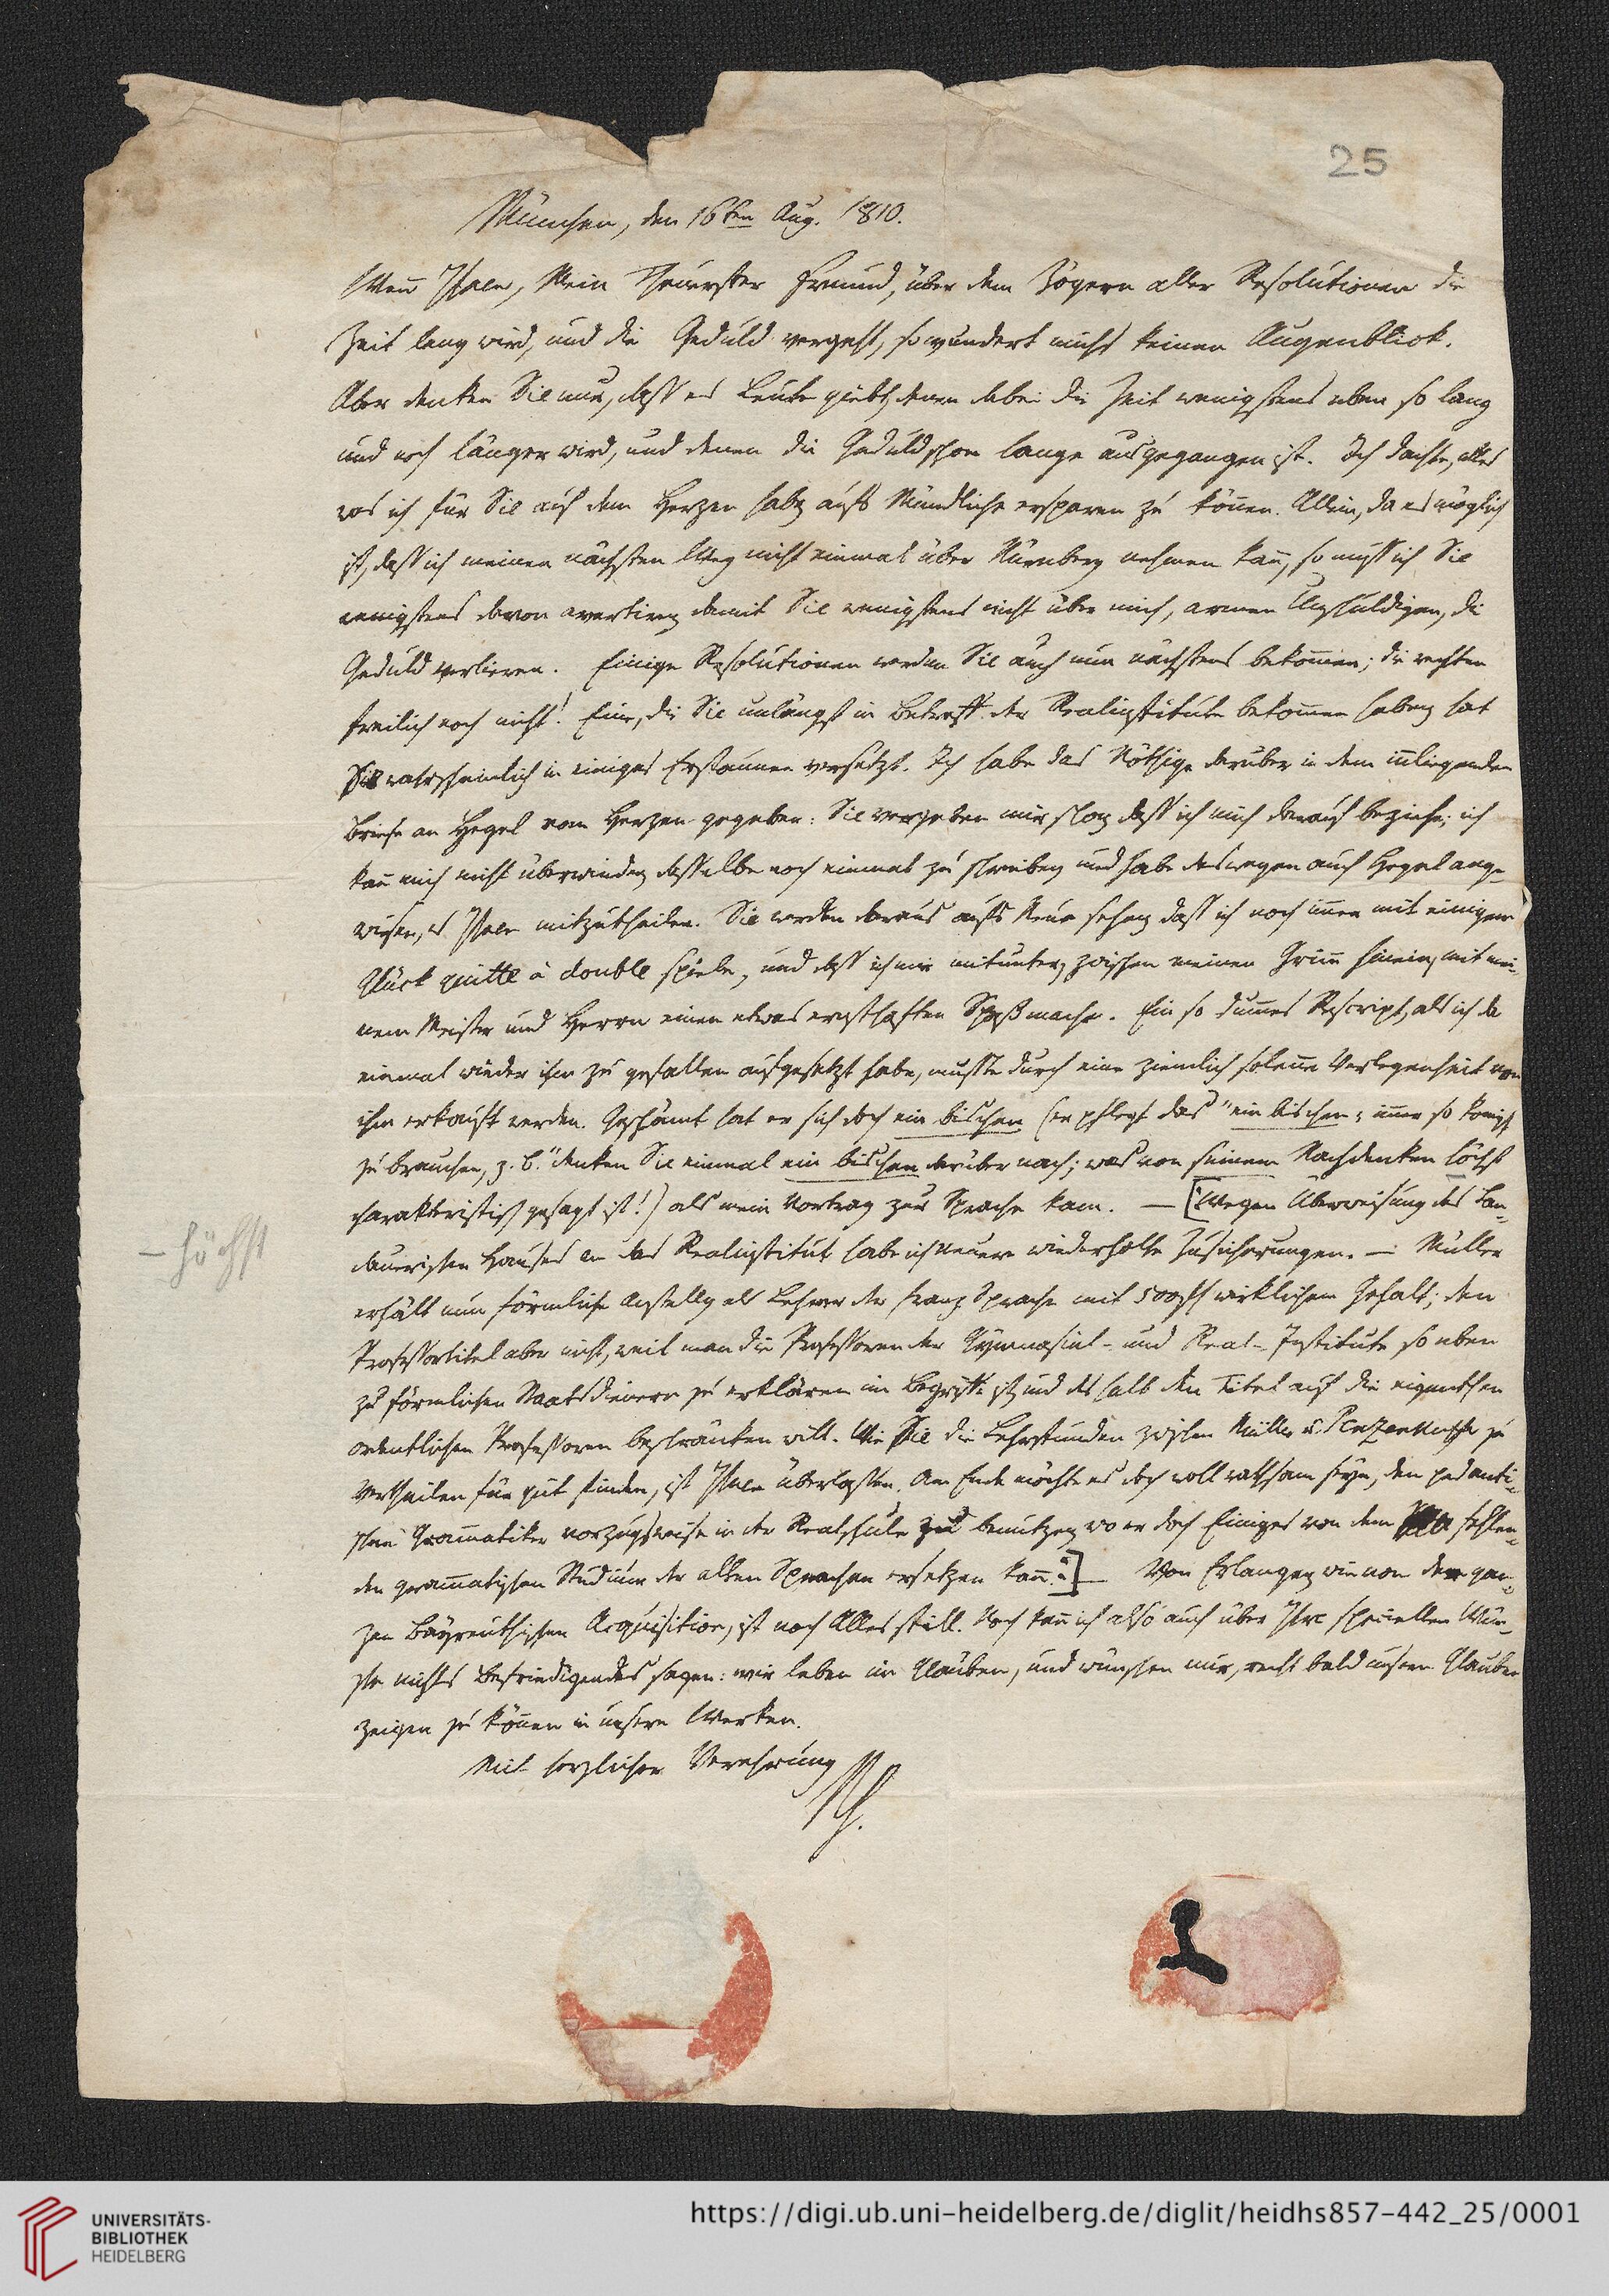 25
München, den 16ten Aug. 1810.
Wenn Ihnen, Mein Theuerster Freund, über dem Zögern aller Resolutionen die
Zeit lang wird, und die Geduld vergeht, so wundert mich keinen Augenblick.
Aber denken Sie nur, daß es Leute giebt, denen dabei die Zeit wenigstens eben so lang
und noch länger wird, und denen die Geduld schon lange ausgegangen ist. Ich dachte, alles
was ich für Sie auf dem Herzen habe, aufs Mündliche ersparen zu können. Allein, da es möglich
ist, daß ich meinen nächsten Weg nicht einmal über Nürnberg nehmen kann, so muß ich Sie
wenigstens davon avertiren, damit Sie wenigstens nicht über mich, armen Unschuldigen, die
Geduld verlieren. Einige Resolutionen werden Sie auch nun nächstens bekommen; die rechten
freilich noch nicht! Eine, die Sie unlängst in Betreff der Realinstitute bekommen haben, hat
Sie wahrscheinlich in einiges Erstaunen versetzt. Ich habe das Nöthige darüber in dem innliegenden
Briefe an Hegel vom Herzen gegeben: Sie vergeben mir schon, daß ich mich darauf beziehe; ich
kann mich nicht überwinden, dasselbe noch einmal zu schreiben, und habe deswegen auch Hegel ange-
wiesen, es Ihnen mitzutheilen. Sie werden daraus aufs Neue sehen, daß ich noch immer mit einigem
Glück quitte à double spiele, und daß ich mir mitunter, zwischen meinen Grimm hinein, mit mei-
nem Meister und Herrn einen etwas ernsthaften Spaß mache. Ein so dummes Rescript, als ich da
einmal wieder ihm zu gefallen aufgesetzt habe, mußte durch eine ziemlich solenne Verlegenheit von
ihm erkauft werden. Geschämt hat er sich doch ein bischen (er pflegt das "ein bischen" immer so komisch
zu brauchen, z. B. "denken Sie einmal ein bischen darüber nach; was von seinem Nachdenken höchst
charakteristisch gesagt ist!) als mein Vortrag zur Sprache kam. — [Wegen Überweisung des Lan-
- höchst
dauerischen Hauses an das Realinstitut habe ich neuere wiederholte Zusicherungen. — Müller
erhält nun förmliche Anstellg als Lehrer der franz Sprache mit 500 fl wirklichem Gehalt; den
Professortitel aber nicht, weil man die Professoren der Gymnasial- und Real-Institute so eben
zu förmlichen Staatsdienern zu erklären im Begriffe ist, und deshalb den Titel auf die eigentlichen
ordentlichen Professoren beschränken will. Wie Sie die Lehrstunden zwischen Müller u. zu
vertheilen für gut finden, ist Ihnen überlassen. Am Ende möchte es doch woll rathsam seyn, den pedanti-
schen Grammatiker vorzugsweise in der Realschule zu benutzen, wo er doch Einiges von dem fehlen-
den grammatischen Studium der alten Sprachen ersetzen kann.] — Von Erlangen, wie von der gan-
zen Bayreuthischen Acquisition, ist noch Alles still. Noch kann ich also auch über Ihre speciellen Wün-
sche nichts Befriedigendes sagen: wir leben im Glauben, und wünschen nur, recht bald unsern Glauben
zeigen zu können in unsern Werken.
Mit herzlicher Verehrung
UNIVERSITÄTS-
BIBLIOTHEK
HEIDELBERG
https://digi.ub.uni-heidelberg.de/diglit/heidhs857-442_25/0001